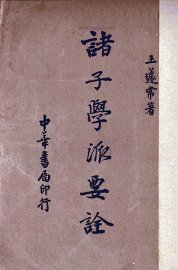 王蘧常著
諸子學派要詮
中華書局印行